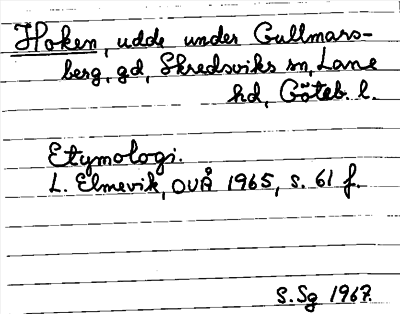 Hoken, udde under Gullmars-
berg, gd, Skredsviks sn, Lane
hd, Göteb. l.
Etymologi.
L. Elmevik, OUÅ 1965, s. 61 f.
S.Sg 1967.